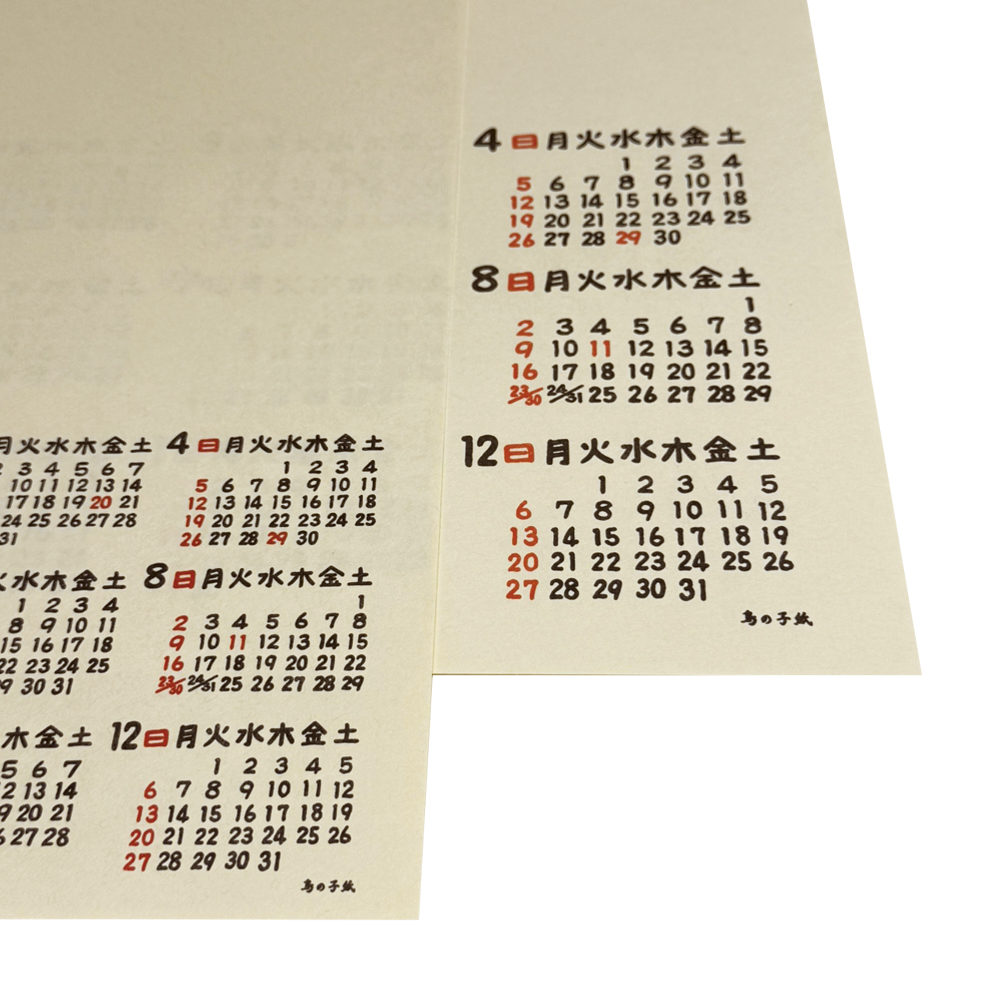 4 日 月 火 水 木 金 土
1 2 3 4
5 6 7 8 9 10 11
12 13 14 15 16 17 18
19 20 21 22 23 24 25
26 27 28 29 30
8 日 月 火 水 木 金 土
1
2 3 4 5 6 7 8
9 10 11 12 13 14 15
16 17 18 19 20 21 22
23/30 24/31 25 26 27 28 29
12 日 月 火 水 木 金 土
1 2 3 4 5
6 7 8 9 10 11 12
13 14 15 16 17 18 19
20 21 22 23 24 25 26
27 28 29 30 31
鳥の子紙
月 火 水 木 金 土
2 3 4 5 6 7
10 11 12 13 14
17 18 19 20 21
24 25 26 27 28
31
水 木 金 土
1 2 3 4
8 9 10 11
15 16 17 18
22 23 24 25
29 30 31
木 金 土
5 6 7
12 13 14
19 20 21
26 27 28
4 日 月 火 水 木 金 土
1 2 3 4
5 6 7 8 9 10 11
12 13 14 15 16 17 18
19 20 21 22 23 24 25
26 27 28 29 30
8 日 月 火 水 木 金 土
1
2 3 4 5 6 7 8
9 10 11 12 13 14 15
16 17 18 19 20 21 22
23/30 24/31 25 26 27 28 29
12 日 月 火 水 木 金 土
1 2 3 4 5
6 7 8 9 10 11 12
13 14 15 16 17 18 19
20 21 22 23 24 25 26
27 28 29 30 31
鳥の子紙